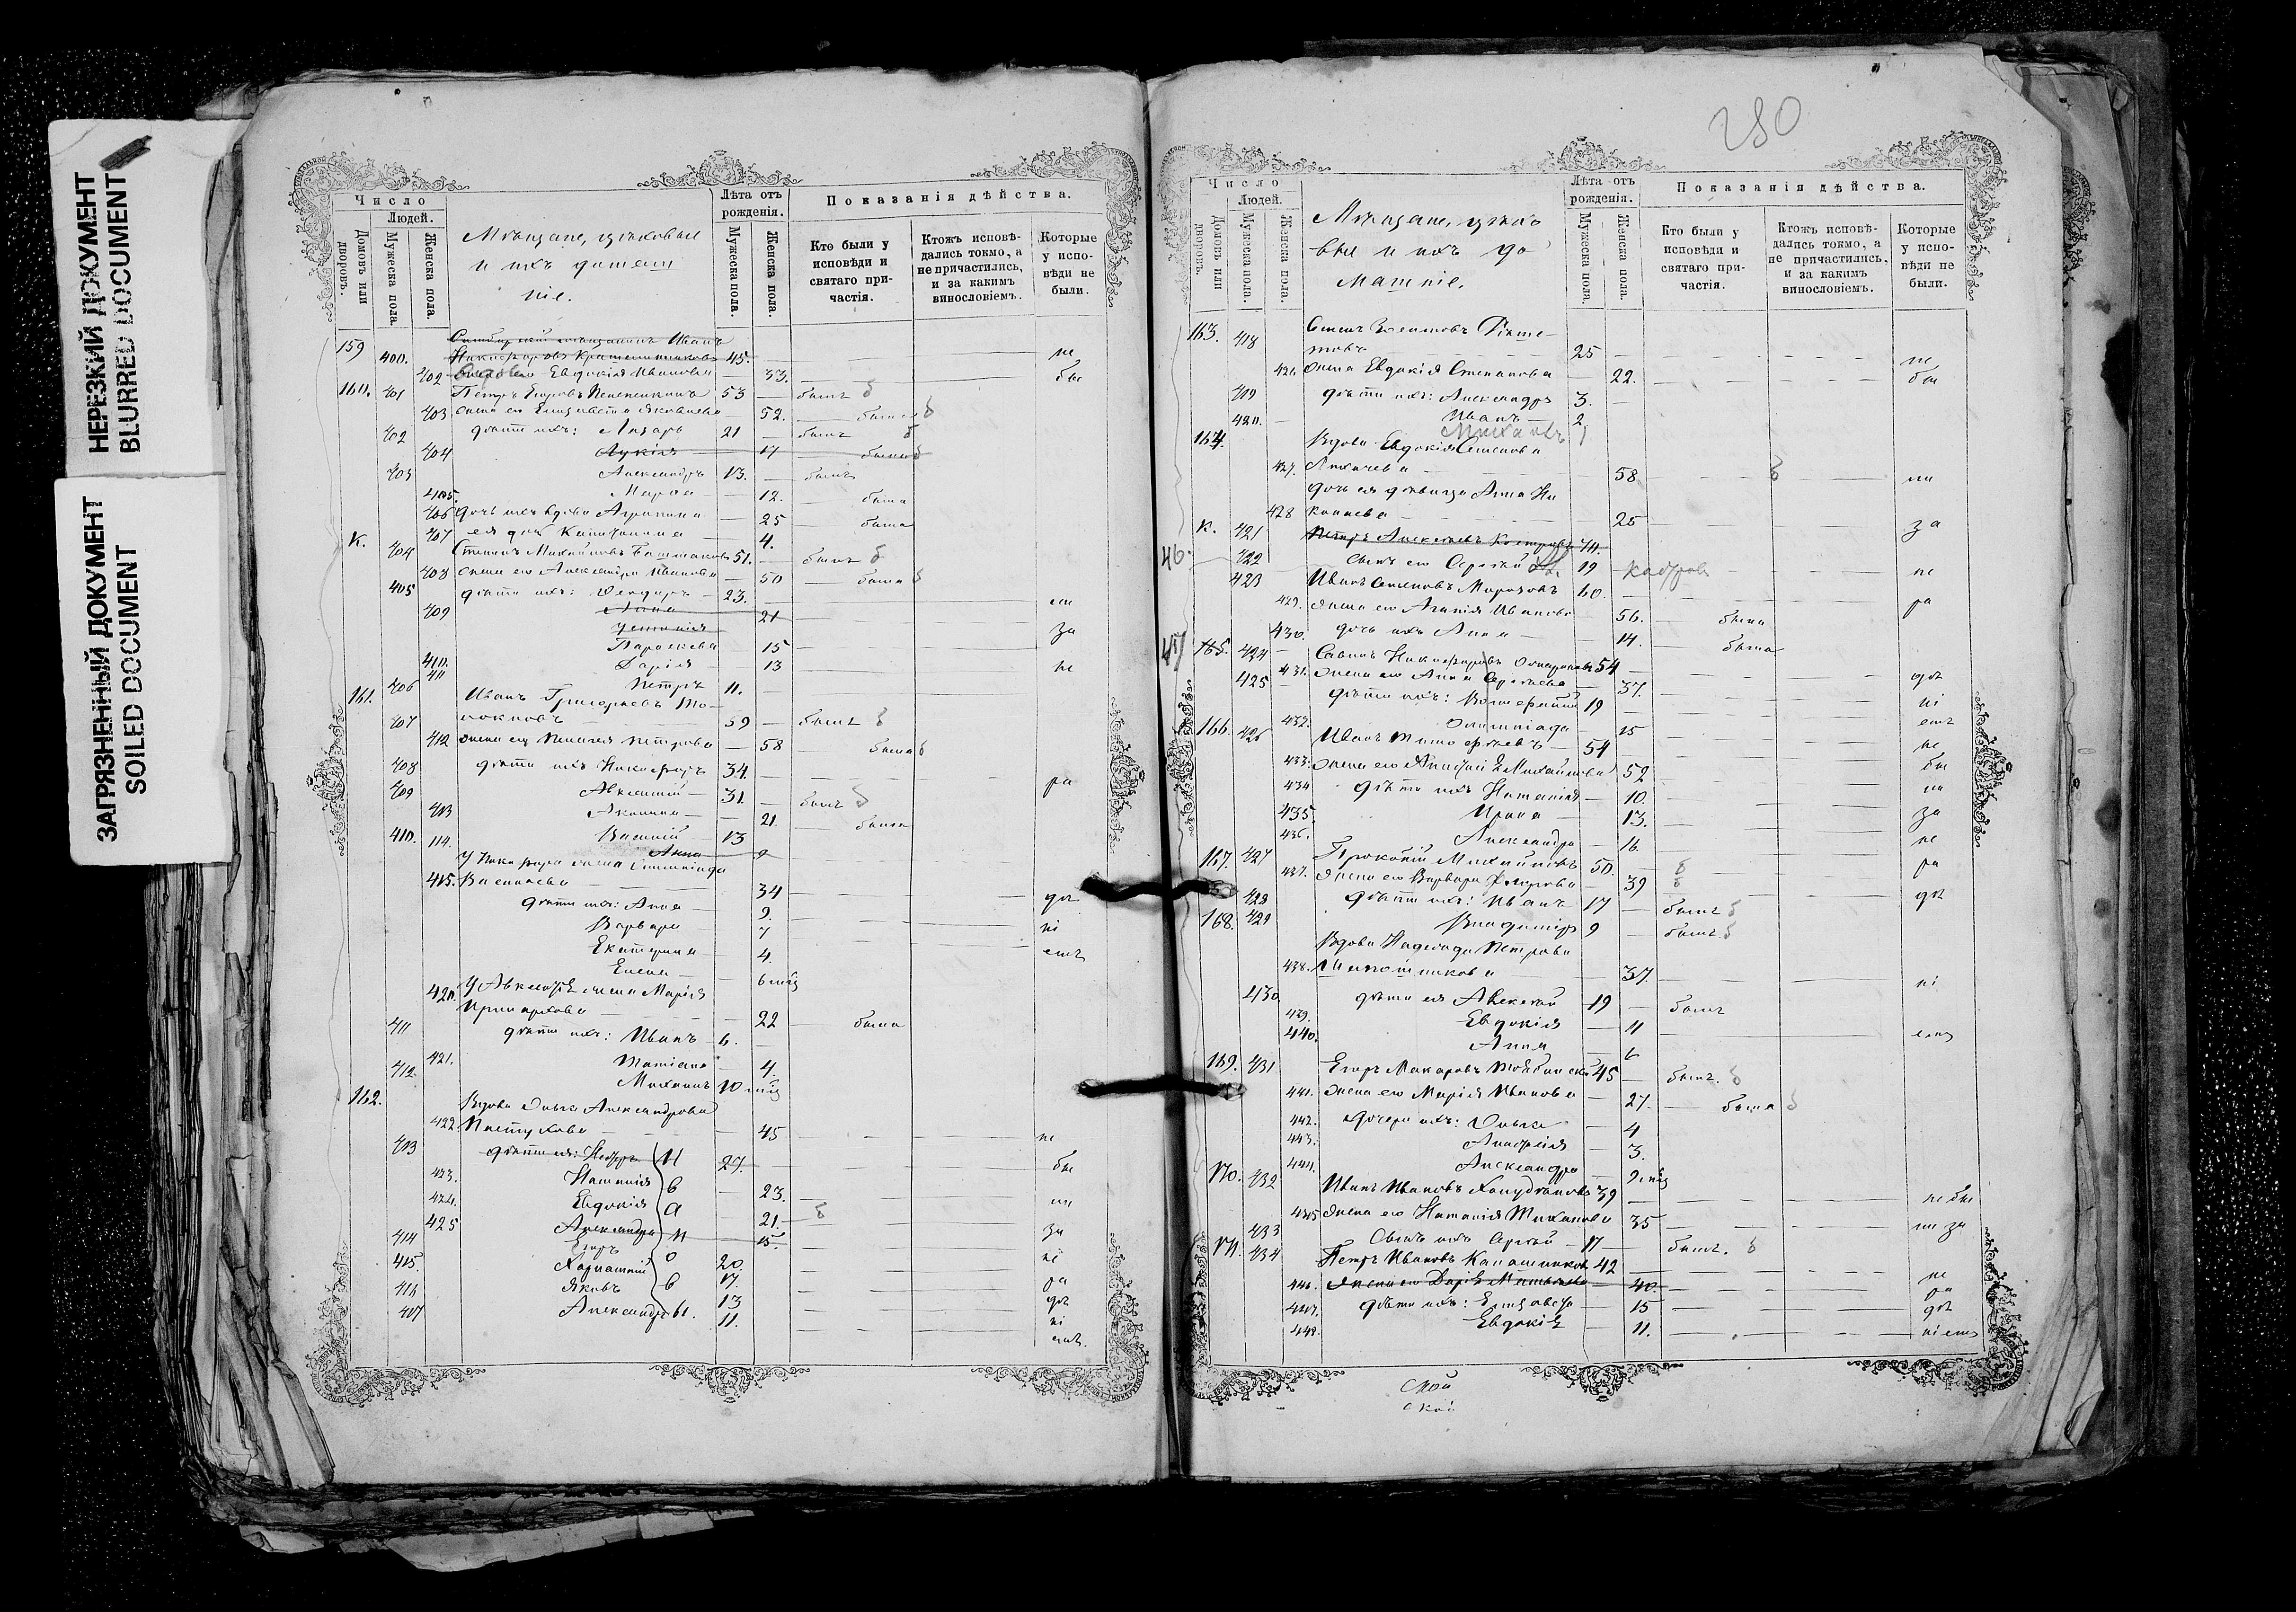 НЕРЕЗКИЙ ДОКУМЕНТ
BLURRED DOCUMENT
ЗАГРЯЗНЕННЫЙ ДОКУМЕНТ
SOILED DOCUMENT
Число
Людей.
Домовъ или дворовъ.
Мужеска пола.
Женска пола.
Мѣщане, цѣховые
и ихъ домаш
ніе.
Лѣта отъ рожденія.
Мужеска пола.
Женска пола.
Показанія дѣйства.
Кто были у исповѣди и святаго причастія.
Ктожъ исповѣдались токмо, а не причастились, и за какимъ винословіемъ.
Которые у исповѣди не были.
159 400. Иванъ
Никифоровъ 45. не
402 Евдокія Иванова 33. бы
160. 401 Петръ Егоровъ 53 былъ б
403 жена его Елизавета Яковлева 52. была б
402 дѣти ихъ: Лазарь 21 былъ б
404 Лукія 17 была б
403 Александръ 13. былъ
405. Марѳа 12. была
406 дочь ихъ вдова Агрипина 25 была
407 ея дочь Капитолина 4.
К. 404 Степанъ Михайловъ Башмаковъ 51. былъ б
408 жена его Александра Иванова 50 была б
405 дѣти ихъ: Ѳеодоръ 23. ли
409 Анна 21
Устинія за
Параскева 15
410. Дарія 13 не
411
406 Петръ 11.
161. Иванъ Григорьевъ То-
407 локновъ 59 былъ б
412 жена его Пелагея Петрова 58 была б
408 дѣти ихъ Никифоръ 34. ра
409 Авксентій 31. былъ б
413 Акилина 21. была
410. 114. Василій 13
Анна 9
У Никифора жена Олимпіада
415. Васильева 34 дѣ
дѣти ихъ: Анна 9.
Варвара 7 ні
Екатерина 4. емъ
Елена 6 мѣс
420. У Авксентія жена Марія
22 была
411 дѣти ихъ: Иванъ 6.
421. Татіана 4.
412. Михаилъ 10 мѣс
162. Вдова Ольга Александрова
422 Пастухова 45 не
413 дѣти ея: Петръ 27. бы
423. Наталія 23. ли
424. Евдокія 21. б
425 Александра 15. за
414 Егоръ 20. ні
415. Харлампій 17. ра
416 Яковъ 13 дѣ
417 Александръ 11. ні
емъ.
280
Число
Людей.
Домовъ или дворовъ.
Мужеска пола.
Женска пола.
Мѣщане, цѣхо
вые и ихъ до
машніе.
Лѣта отъ рожденія.
Мужеска пола.
Женска пола.
Показанія дѣйства.
Кто были у исповѣди и святаго причастія.
Ктожъ исповѣдались токмо, а не причастились, и за какимъ винословіемъ.
Которые у исповѣди не были.
163. 418 25 не
426. жена Евдокія Степанова 22. бы
419 дѣти ихъ: Александръ 3.
420. Иванъ 2
Михаилъ 1
164. Вдова Евдокія Семенова
427. Лихачева 58 б ли
дочь ея дѣвица Анна Ни
428 колаева 25 за
К. 421 Петръ Алексѣевъ Костровъ 74.
46. 422 Сынъ его Сергѣй 19 не
423 Иванъ Семеновъ Морозовъ 60. ра
429. жена его Агапія Иванова 56. была
430. дочь ихъ Анна 14. была
47 165. 424 Савинъ Никифоровъ 54 дѣ
431. жена его Анна Сергѣева 37. ні
425 дѣти ихъ: 19 емъ
432. Олимпіада 15 не
166. 426 Иванъ Тимофѣевъ 54 бы
433. жена его Михайлова 52 ли
434 дѣти ихъ Наталія 10. за
435. Ирина 13.
436. Александра 16 не
167. 427 Прокопій Михайловъ 50. б ра
437. жена его Варвара Федорова 39 б дѣ
428 дѣти ихъ: Иванъ 17 былъ б
168. 429 Владиміръ 9 былъ. б
Вдова Надежда Петрова
438. 37. ні
430. дѣти ея Алексѣй 19 былъ
439. Евдокія 11 емъ
440. Анна 6
169. 431 Егоръ Макаровъ 45 былъ. б
441. жена его Марія Иванова 27. была б
442. дочери ихъ: Ольга 4
443. 3.
444. Александра 9 мѣс
170. 432 Иванъ Ивановъ 39 не бы
445 жена его Наталія Михайлова 35 ли за
433 Сынъ ихъ Сергѣй 17 былъ. б
171. 434 Петръ Ивановъ Калашниковъ 42 не
446. жена его Дарія Матвѣева 40. ра
447. дѣти ихъ: Елизавета 15 дѣ
448. Евдокія 11. ніемъ
ской
ской